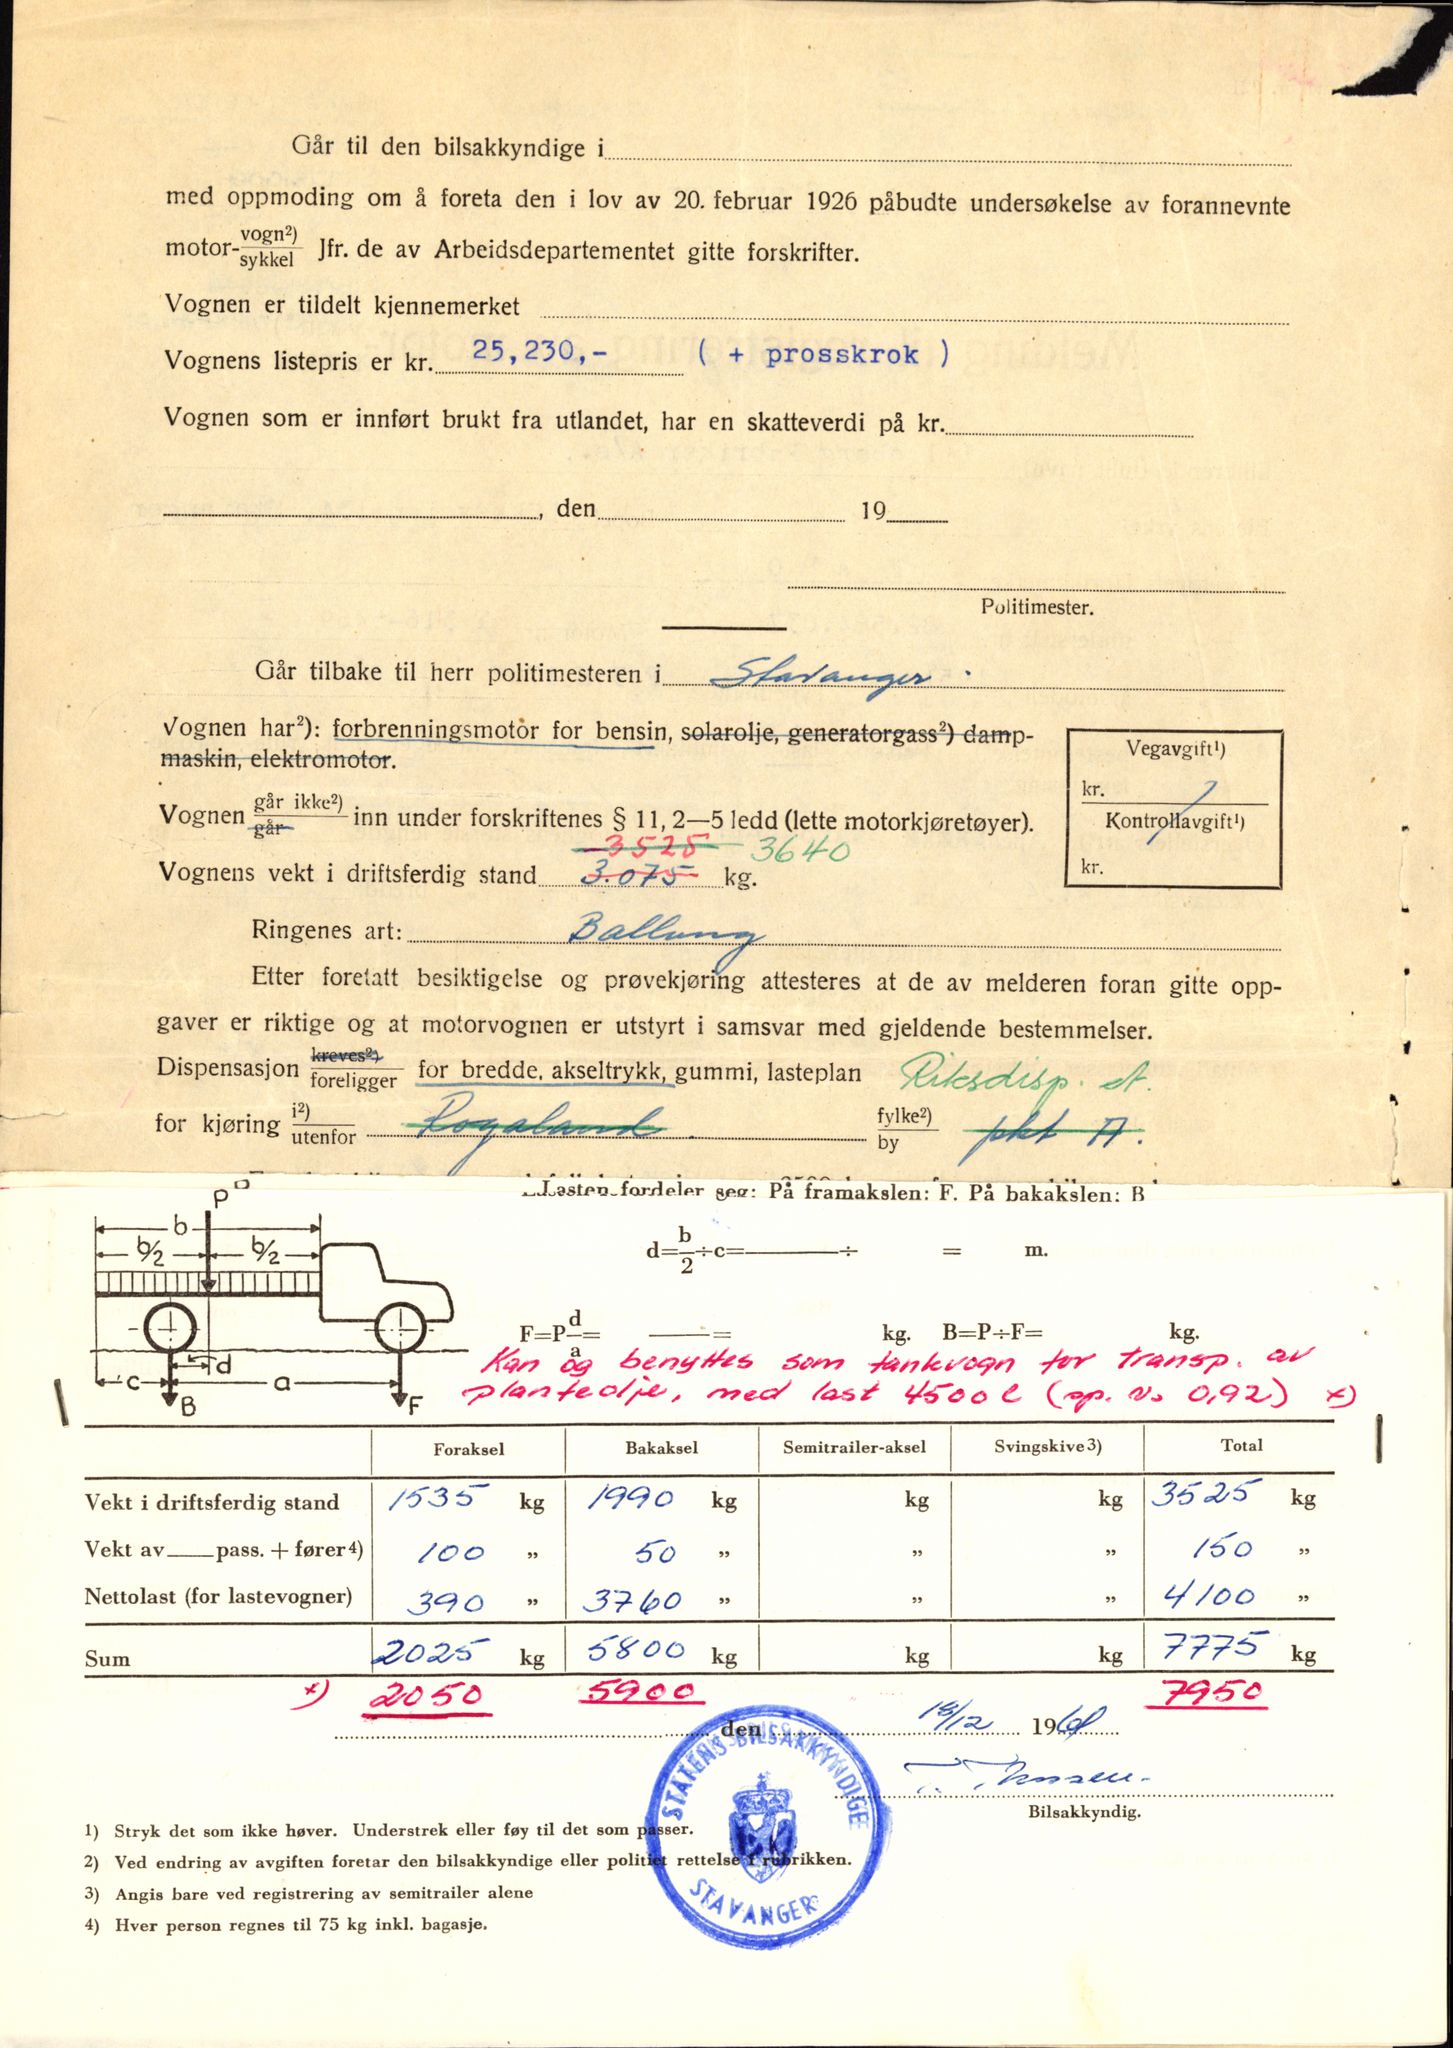 Går til den bilsakkyndige i
med oppmoding om å foreta den i lov av 20. februar 1926 påbudte undersøkelse av forannevnte
motor-vogn²)/sykkel Jfr. de av Arbeidsdepartementet gitte forskrifter.
Vognen er tildelt kjennemerket
Vognens listepris er kr. 25,230,- ( + prosskrok )
Vognen som er innført brukt fra utlandet, har en skatteverdi på kr.
, den 19
Politimester.
Går tilbake til herr politimesteren i Stavanger.
Vognen har²): forbrenningsmotor for bensin, solarolje, generatorgass²) damp-
maskin, elektromotor.
Vegavgift¹)
kr.
Kontrollavgift¹)
kr.
Vognen går ikke²)/går inn under forskriftenes § 11, 2—5 ledd (lette motorkjøretøyer).
3525 3640
Vognens vekt i driftsferdig stand 3.075 kg.
Ringenes art: Ballong
Etter foretatt besiktigelse og prøvekjøring attesteres at de av melderen foran gitte opp-
gaver er riktige og at motorvognen er utstyrt i samsvar med gjeldende bestemmelser.
Dispensasjon kreves²)/foreligger for bredde, akseltrykk, gummi, lasteplan Riksdisp. et.
for kjøring i²)/utenfor Rogaland fylke²)/by pkt A.
Lasten fordeler seg: På framakslen: F. På bakakslen: B
P
b
b/2 b/2
d
c a
B F
d=b/2÷c= ÷ = m.
F=P d/a= = kg. B=P÷F= kg.
Kan og benyttes som tankvogn for transp. av
planteolje, med last 4500 l (sp. v. 0,92) x)
Foraksel Bakaksel Semitrailer-aksel Svingskive3) Total
Vekt i driftsferdig stand 1535 kg 1990 kg kg kg 3525 kg
Vekt av pass. + fører4) 100 „ 50 „ „ „ 150 „
Nettolast (for lastevogner) 390 „ 3760 „ „ „ 4100 „
Sum 2025 kg 5800 kg kg kg 7775 kg
x) 2050 5900 7950
den 18/12 19
Bilsakkyndig.
STATENS BILSAKKYNDIGE
STAVANGER
1) Stryk det som ikke høver. Understrek eller føy til det som passer.
2) Ved endring av avgiften foretar den bilsakkyndige eller politiet rettelse i rubrikken.
3) Angis bare ved registrering av semitrailer alene
4) Hver person regnes til 75 kg inkl. bagasje.